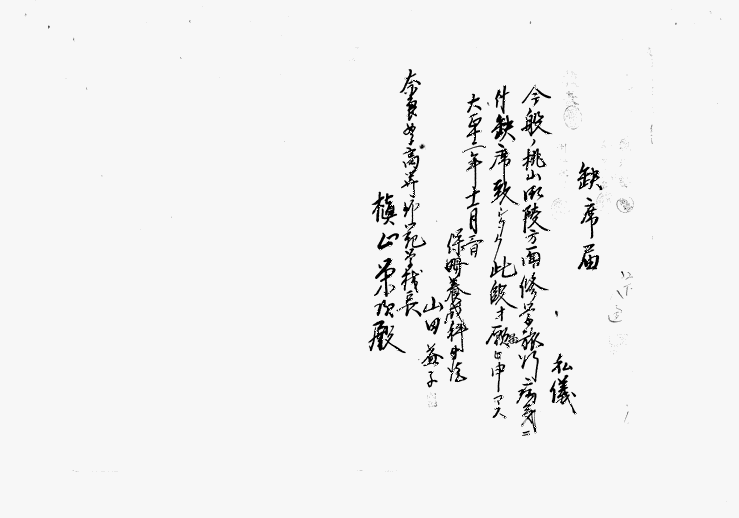 缺席届
私儀
今般ノ桃山御陵方面修学旅行病気ニ
付缺席致シタク此段御願上申マス
大正二年十一月
保姆養成科生徒
山田益子
奈良女高等師範学校長
槇山栄次殿